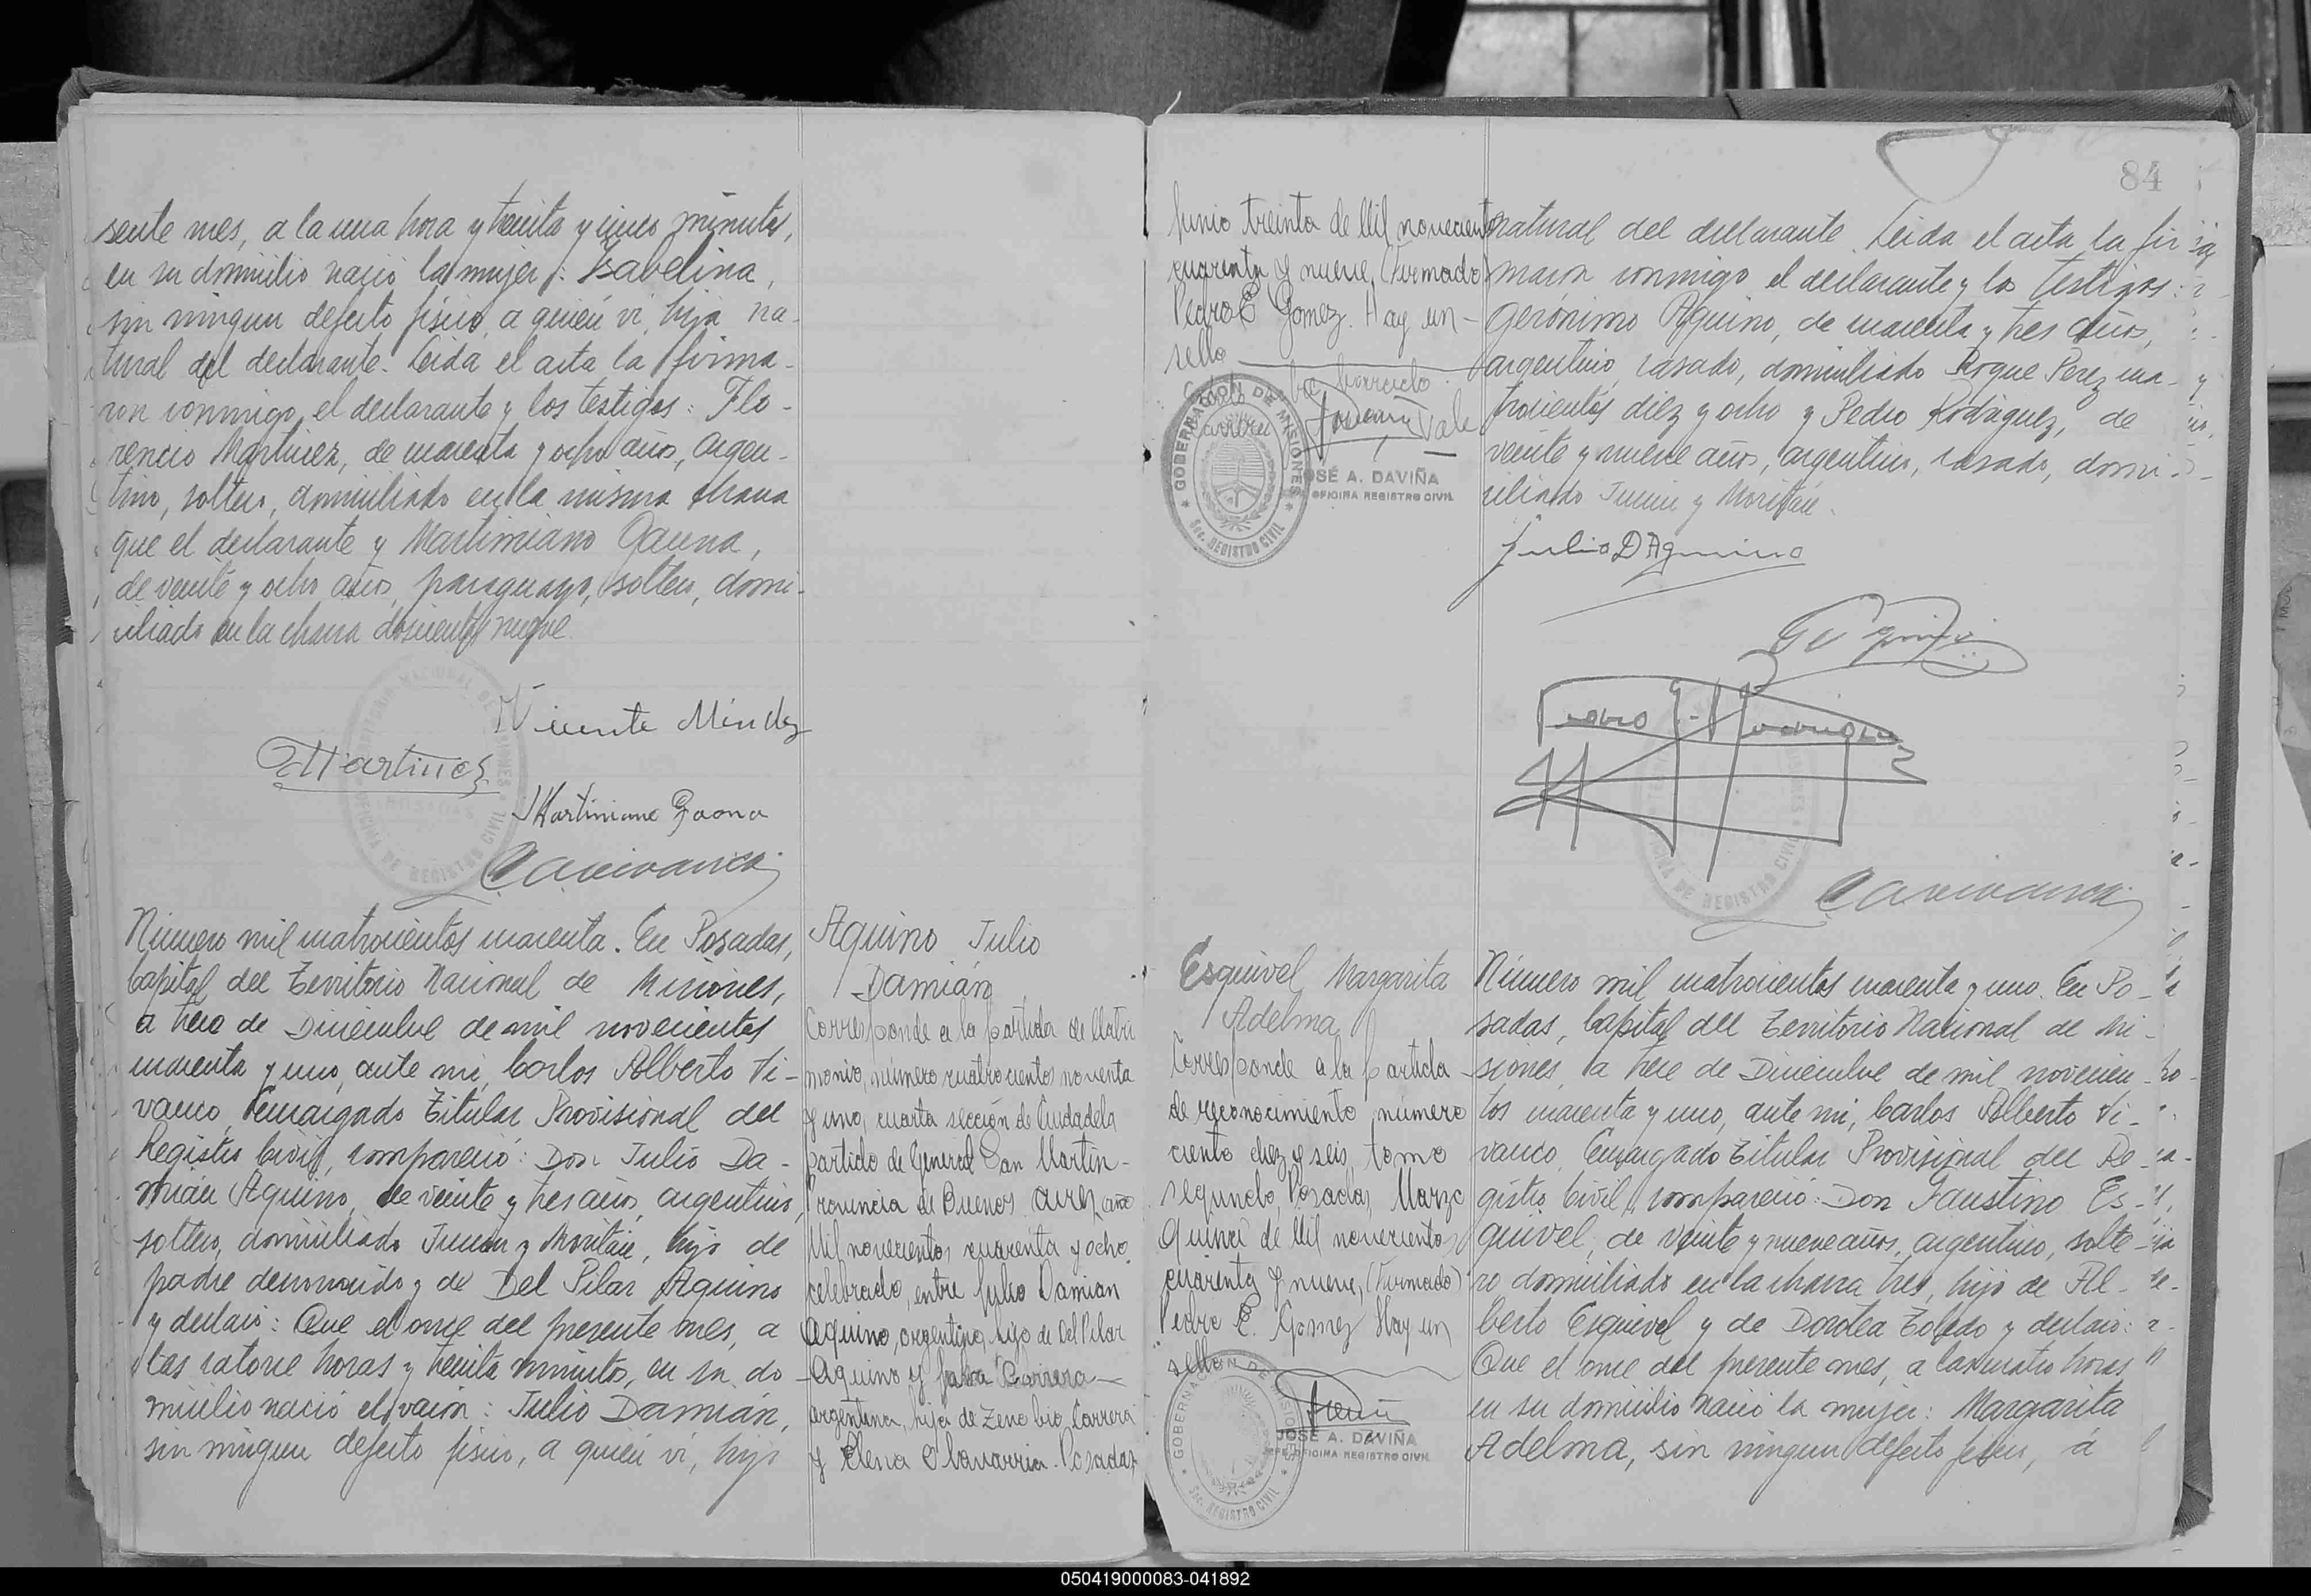 sente mes, a la una hora y treinta y cinco minutos,
en su domicilio nació la mujer: Isavelina,
sin ningun defecto físico, a quién ví, hija na-
tural del declarante. Leida el acta la firma-
ron conmigo, el declarante y los testigos: Flo-
rencio Martinez, de cuarenta y ocho años, argen-
tino, soltero, domiciliado en la misma chacra
que el declarante y Martimiano Gauna,
de veinte y ocho años, paraguayo, soltero, domi-
ciliado en la chacra doscientos nueve.
Vicente Mendez
FMartinez
Martiniano Gaona
CAVivanco
Número mil cuatrocientos cuarenta. En Posadas,
Capital del Territorio Nacional de Misiones,
a trece de Diciembre de mil novecientos
cuarenta y uno, ante mi, Carlos Alberto Vi-
vanco, Encargado Titular Provisional del
Registro Civil, compareció: Don Julio Da-
mián Aquino, de veinte y tres años, argentino,
soltero, domiciliado Junin y Moritán, hijo de
padre desconocido y de Del Pilar Aquino
y declaró: Que el once del presente mes, a
las catorce horas y treinta minutos, en su do
micilio nació el varón: Julio Damián,
sin ningun defecto físico, a quién ví, hijo
Aquino Julio
Damián
Corresponde a la partida de Matri
monio, número cuatrocientos noventa
y uno, cuarta sección de Ciudadela
partido de General San Martin-
Provincia de Buenos Aires, año
Mil novecientos cuarenta y ocho
celebrado, entre Julio Damian
Aquino, argentino, hijo de Del Pilar
Aquino y Carrera
argentina, hija de Zenobio Carrera
y Elena Olavarria. Posadas
84
Junio treinta de Mil novecientos
cuarenta y nueve, (Firmado)
Pedro E Gomez. Hay un-
sello
borrado.
Carrera Vale
GOBERNACIÓN DE MISIONES
Sec. REGISTRO CIVIL
JOSÉ A. DAVIÑA
JEFE OFICINA REGISTRO CIVIL
natural del declarante. Leida el acta la fir
maron conmigo el declarante y los testigos:
Gerónimo Aquino, de cuarenta y tres años,
argentino, casado, domiciliado Roque Perez cua-
trocientos diez y ocho y Pedro Rodriguez, de
veinte y nueve años, argentino, casado, domi-
ciliado Junin y Moritán.
Julio D Aquino
Pedro J. Rodriguez
CAVivanco
Esquivel Margarita
Adelma
Corresponde a la partida
de reconocimiento número
ciento diez y seis tomo
segundo, Posadas, Marzo
Quince de Mil novecientos
cuarenta y nueve, (Firmado)
Pedro E. Gomez Hay un
sello
GOBERNACIÓN DE MISIONES
Sec. REGISTRO CIVIL
JOSÉ A. DAVIÑA
JEFE OFICINA REGISTRO CIVIL
Número mil cuatrocientos cuarenta y uno. En Po-
sadas, Capital del Territorio Nacional de Mi-
siones, a trece de Diciembre de mil novecien-
tos cuarenta y uno, ante mi, Carlos Alberto Vi-
vanco, Encargado Titular Provisional del Re-
gistro Civil, compareció: Don Faustino Es-
quivel, de veinte y nueve años, argentino, solte-
ro domiciliado en la chacra tres, hijo de Al-
berto Esquivel y de Dorotea Toledo y declaró:
Que el once del presente mes, a las cuatro horas
en su domicilio nació la mujer: Margarita
Adelma, sin ningun defecto físico, á
050419000083-041892